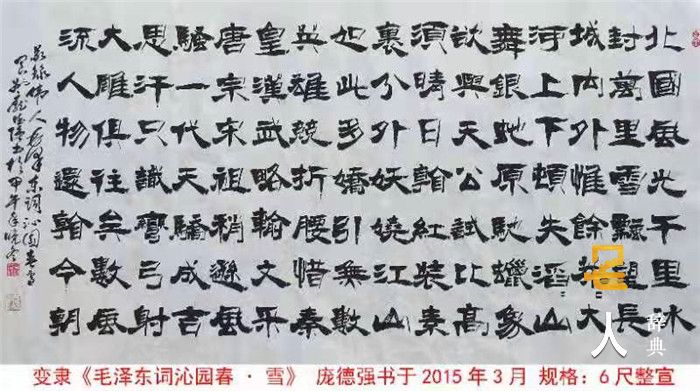 北國風光千里冰
封萬里雪飄望長
城内外惟餘莽〻大
河上下頓失滔〻山
舞銀蛇原馳蠟象
欲與天公試比高
須晴日看紅裝素
裹分外妖嬈江山
如此多嬌引無數
英雄競折腰惜秦
皇漢武略輸文采
唐宗宋祖稍遜風
騷一代天驕成吉
思汗只識彎弓射
大雕俱往矣數風
流人物還看今朝
伟人毛澤東詞沁園春雪
書於甲午年
名人辞典
变隶《毛泽东词沁园春·雪》 庞德强书于2015年3月 规格：6尺整宣